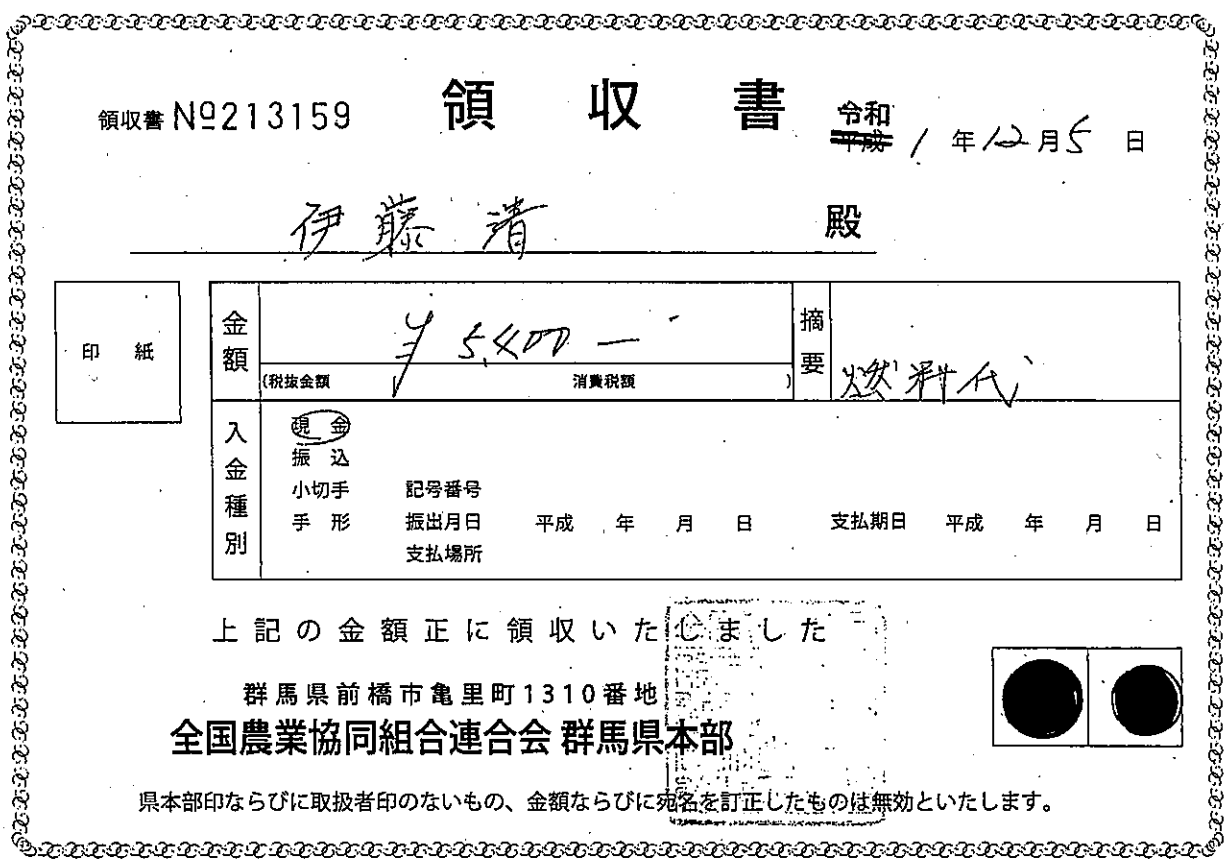 領収書 №213159 領収書 令和
平成 1 年 12 月 5 日
伊藤 清 殿
印 紙
金額 ¥5,400― 摘要 燃料代
(税抜金額 消費税額 )
入金種別 現 金
振 込
小切手 記号番号
手 形 振出月日 平成 年 月 日 支払期日 平成 年 月 日
支払場所
上記の金額正に領収いたしました
群馬県前橋市亀里町1310番地
全国農業協同組合連合会 群馬県本部
県本部印ならびに取扱者印のないもの、金額ならびに宛名を訂正したものは無効といたします。